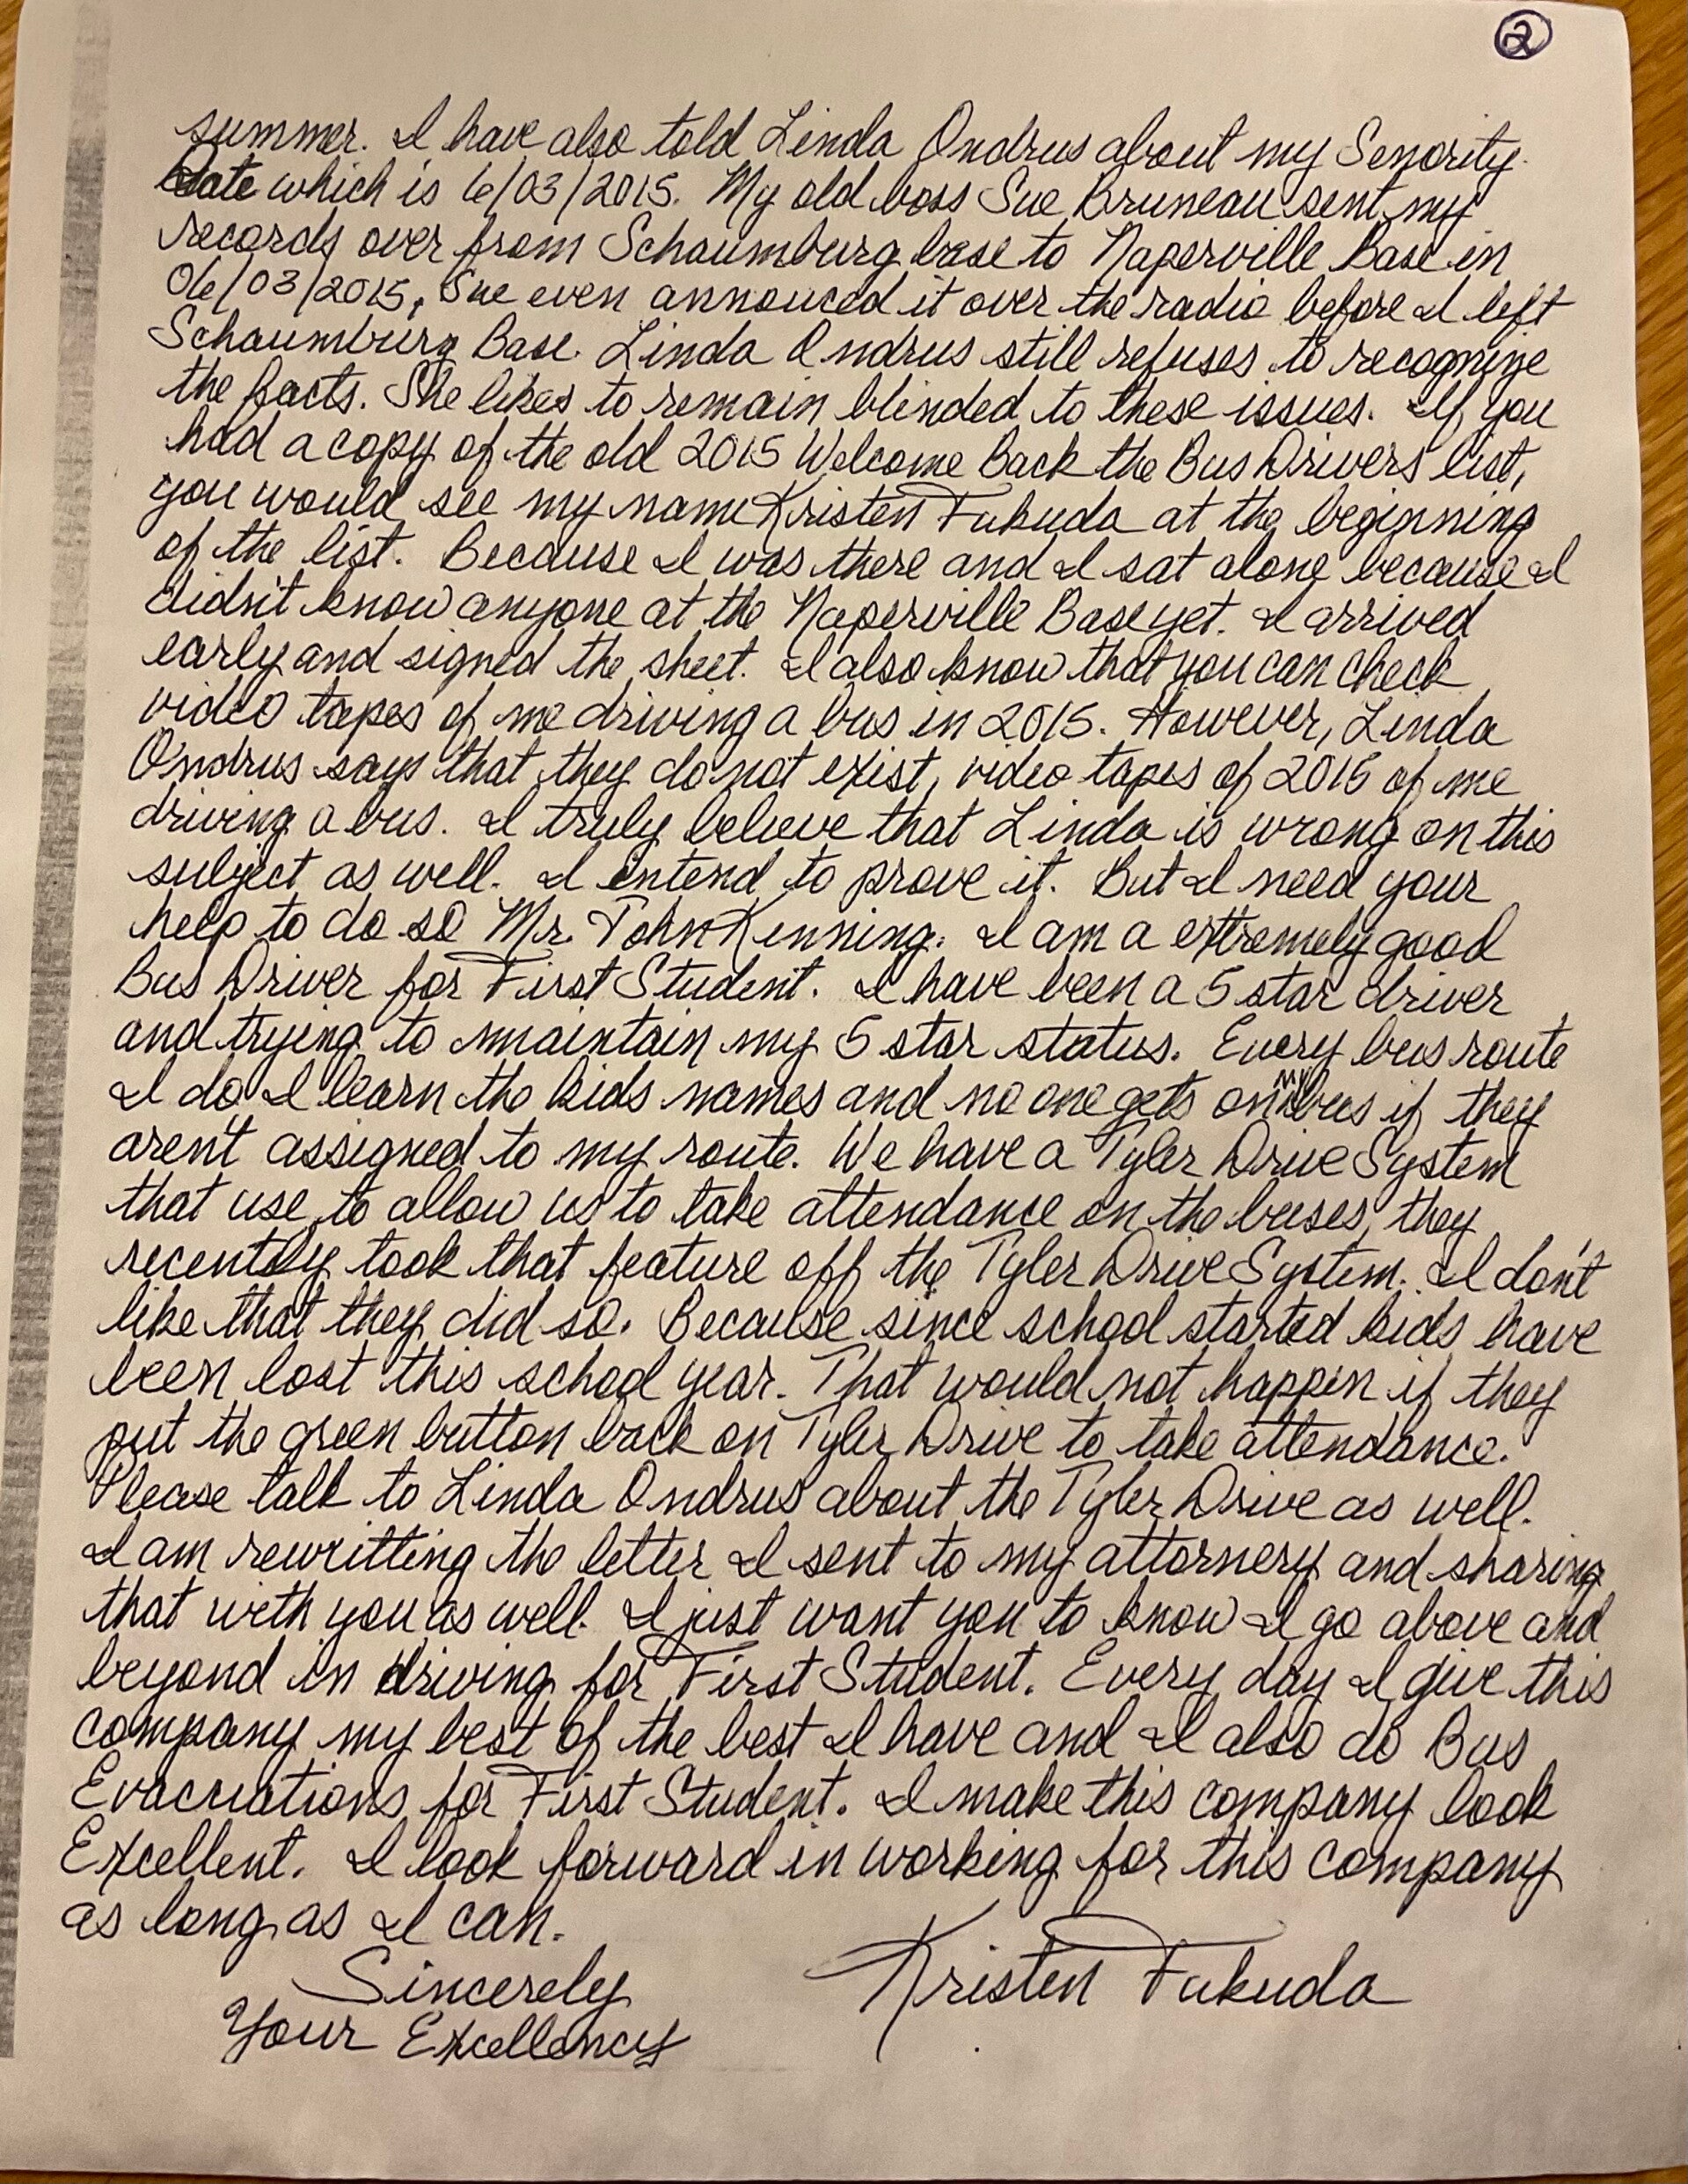 ②
summer. I have also told Linda Ondrus about my Senority
Date which is 6/03/2015. My old boss Sue Bruneau sent my
records over from Schaumburg base to Naperville Base in
06/03/2015, Sue even annouced it over the radio before I left
Schaumburg Base. Linda Ondrus still refuses to recognize
the facts. She likes to remain blinded to these issues. If you
had a copy of the old 2015 Welcome Back the Bus Drivers list,
you would see my name Kristen Fukuda at the beginning
of the list. Because I was there and I sat along because I
didn't know anyone at the Naperville Base yet. I arrived
early and signed the sheet. I also know that you can check
video tapes of me driving a bus in 2015. However, Linda
Ondrus says that they do not exist, video tapes of 2015 of me
driving a bus. I truly believe that Linda is wrong on this
subject as well. I intend to prove it. But I need your
help to do so Mr. John Kenning. I am a extremely good
Bus Driver for First Student. I have been a 5 star driver
and trying to maintain my 5 star status. Every bus route
I do I learn the kids names and no one gets on my bus if they
aren't assigned to my route. We have a Tyler Drive System
that use to allow us to take attendance on the buses, they
recently took that feature off the Tyler Drive System. I don't
like that they did so. Because since school started kids have
been lost this school year. That would not happen if they
put the green button back on Tyler Drive to take attendance.
Please talk to Linda Ondrus about the Tyler Drive as well.
I am rewritting the letter I sent to my attornery and sharing
that with you as well. I just want you to know I go above and
beyond in driving for First Student. Every day I give this
company my best of the best I have and I also do Bus
Evacuations for First Student. I make this company look
Excellent. I look forward in working for this company
as long as I can.
Sincerely Kristen Fukuda
Your Excellency